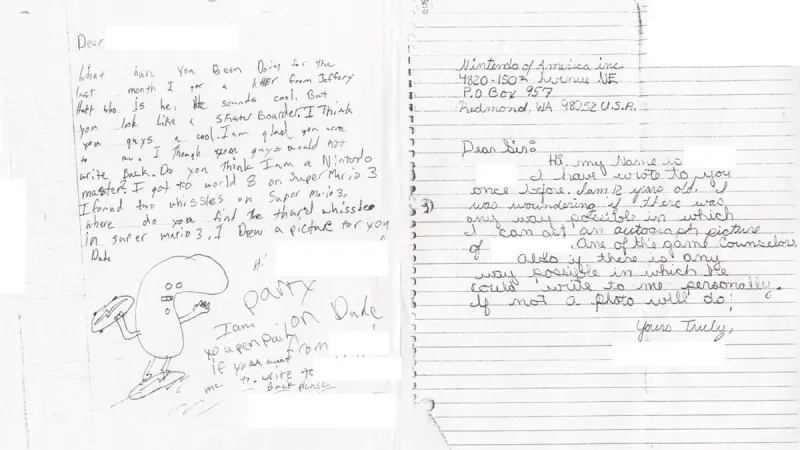 Dear
What have you Been Doing for the
last month I got a letter from Jeffery
Hatt who is he, He sounds cool. But
you look like a skater Boarder. I Think
you guys a cool. I am glad you wrte
to me. I though you guys would not
write Back. Do you think I am a Nintendo
master? I got to world 8 on Super Mario 3
I found two whissles on Super Mario 3.
where do you find the third whissle
in super mario 3. I Drew a picture for you
Dude
Hi
party
on Dude
I am
your pen pal
from
if you want
me to write to
Back please
Nintendo of America inc.
4820-150th Avenue NE
P.O Box 957
Redmond, WA 98052 U.S.A.
Dear Sir:
Hi, my Name is
I have wrote to you
once before. I am 12 years old. I
was woundering if there was
any way possible in which
I can get an autograph picture
of . One of the game Counselors
Also if there is any
way possible in which he
could write to me personally.
If not a photo will do!
Yours Truly,